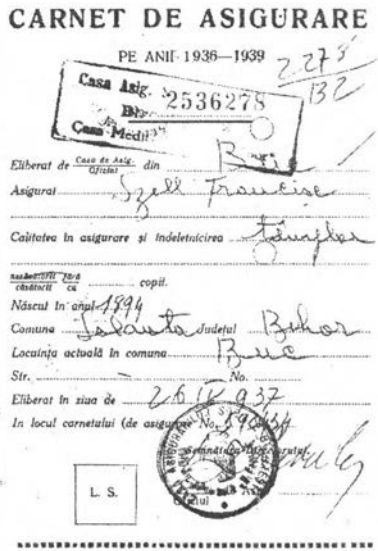 CARNET DE ASIGURARE
PE ANII 1936—1939
2273
132
Casa Asig.
2536278
Casa Medi
Eliberat de Casa de Asig. Oficiul din Buc
Asigurat Szell Francisc
Calitatea în asigurare și îndeletnicirea tâmplar
necăsătorit fără
căsătorit cu copii.
Născut în anul 1894
Comuna Județul Bihor
Locuința actuală în comuna Buc
Str. No.
Eliberat în ziua de 26 IV 937
In locul carnetului (de asigurare No.
Semnătura
L. S.
Oficiul